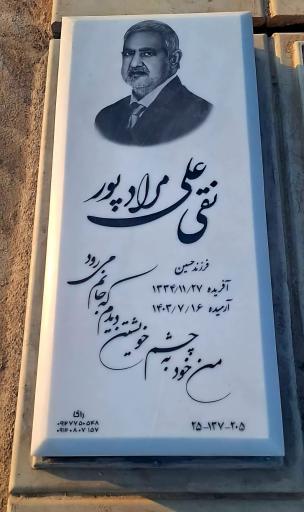 نقی علی مراد پور
فرزند حسین
آفریده ۱۳۳۴/۱۱/۲۷
آرمیده ۱۴۰۳/۷/۱۶
من خود به چشم خویشتن دیدم که جانم می رود
۲۵-۱۳۷-۲۰۵